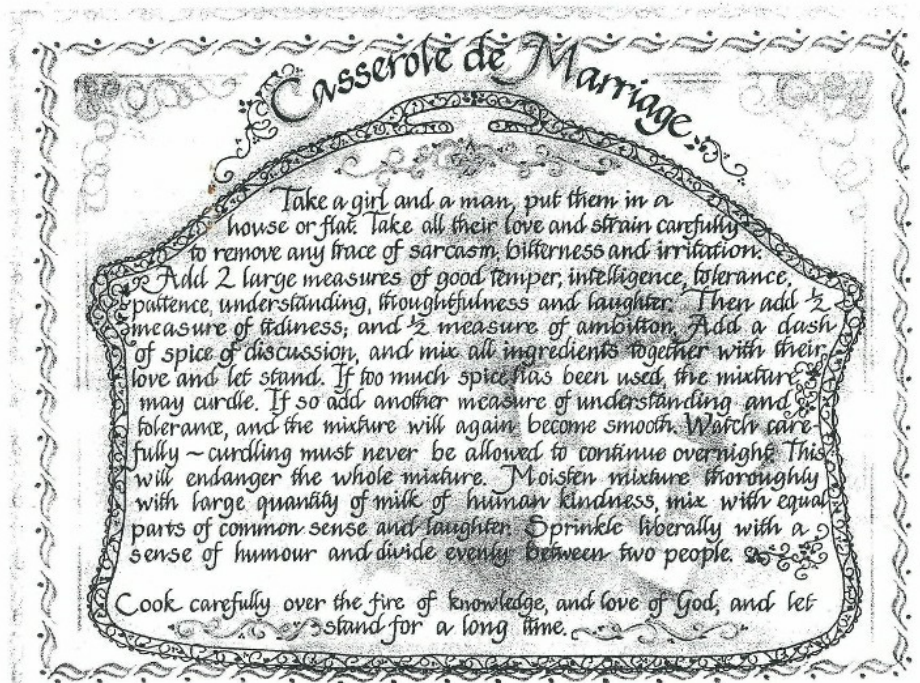 Casserole de Marriage
Take a girl and a man, put them in a
house or flat. Take all their love and strain carefully
to remove any trace of sarcasm, bitterness and irritation.
Add 2 large measures of good temper, intelligence, tolerance,
patience, understanding, thoughtfulness and laughter. Then add ½
measure of tidiness; and ½ measure of ambition. Add a dash
of spice of discussion, and mix all ingredients together with their
love and let stand. If too much spice has been used, the mixture
may curdle. If so add another measure of understanding and
tolerance, and the mixture will again become smooth. Watch care-
fully ~ curdling must never be allowed to continue overnight. This
will endanger the whole mixture. Moisten mixture thoroughly
with large quantity of milk of human kindness, mix with equal
parts of common sense and laughter. Sprinkle liberally with a
sense of humour and divide evenly between two people.
Cook carefully over the fire of knowledge, and love of God, and let
stand for a long time.